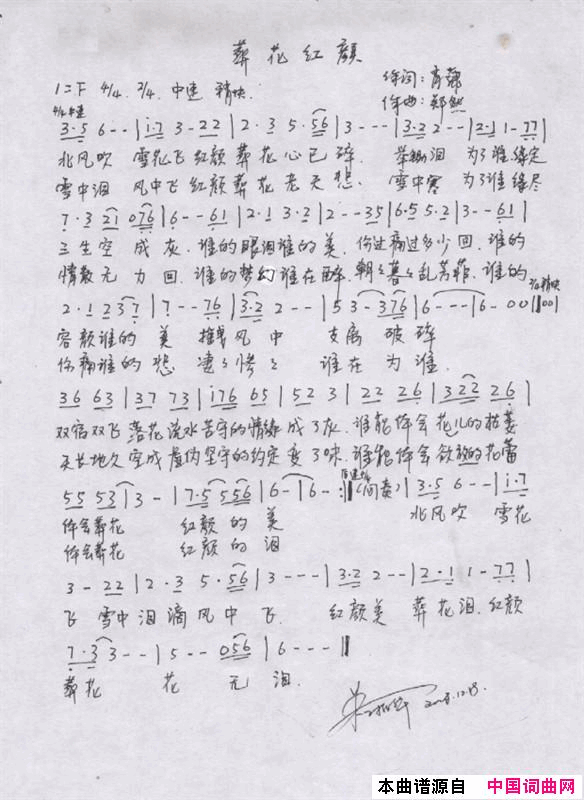 葬花红颜
1=F 4/4. 2/4. 中速 稍快.
作词:肖
4/4 中速 作曲:郑然
3·5 6-- | i·7 3-22 | 2·3 5·56 | 3--- | 3·2 2-- | 2·1 1-77 |
北风吹 雪花飞 红颜葬花心已碎 泪 为了谁缘定
雪中泪 风中飞 红颜葬花老天悲. 雪中寒 为了谁缘尽
7·3 21 076 | 6--61 | 2·1 3·2 | 2--35 | 6·5 5·2 | 3--61 |
三生空 成灰. 谁的眼泪谁的美. 伤过痛过多少回. 谁的
情散无 力回. 谁的梦幻谁在醉. 朝朝暮暮乱芳菲. 谁的
2·1 2 3 7 | 7--76 | 3·2 2-- | 5 3-376 | 6--- | 6-00 | 2/4稍快 00 |
容颜谁的 美 风中 支离破碎
你痛谁的 悲 凄凄惨惨 谁在为谁.
36 63 | 37 73 | i76 65 | 52 3 | 22 26 | 322 26 |
双宿双飞 落花流水苦守的情缘成了灰. 谁能体会花儿的枯萎
天长地久空成虚伪坚守的约定变了味. 谁能体会欲放的花蕾
55 53 | 3- | 7·5 556 | 6- | 6-- :‖ (间奏) | 3·5 6-- | i·7
体会葬花 红颜的美 北风吹 雪花
体会葬花 红颜的泪
3-22 | 2·3 5·56 | 3--- | 3·2 2-- | 2·1 1-77 |
飞 雪中泪滴风中飞. 红颜美 葬花泪. 红颜
7·3 3-- | 5-- 056 | 6--- ‖
葬花 花无泪.
本曲谱源自 中国词曲网